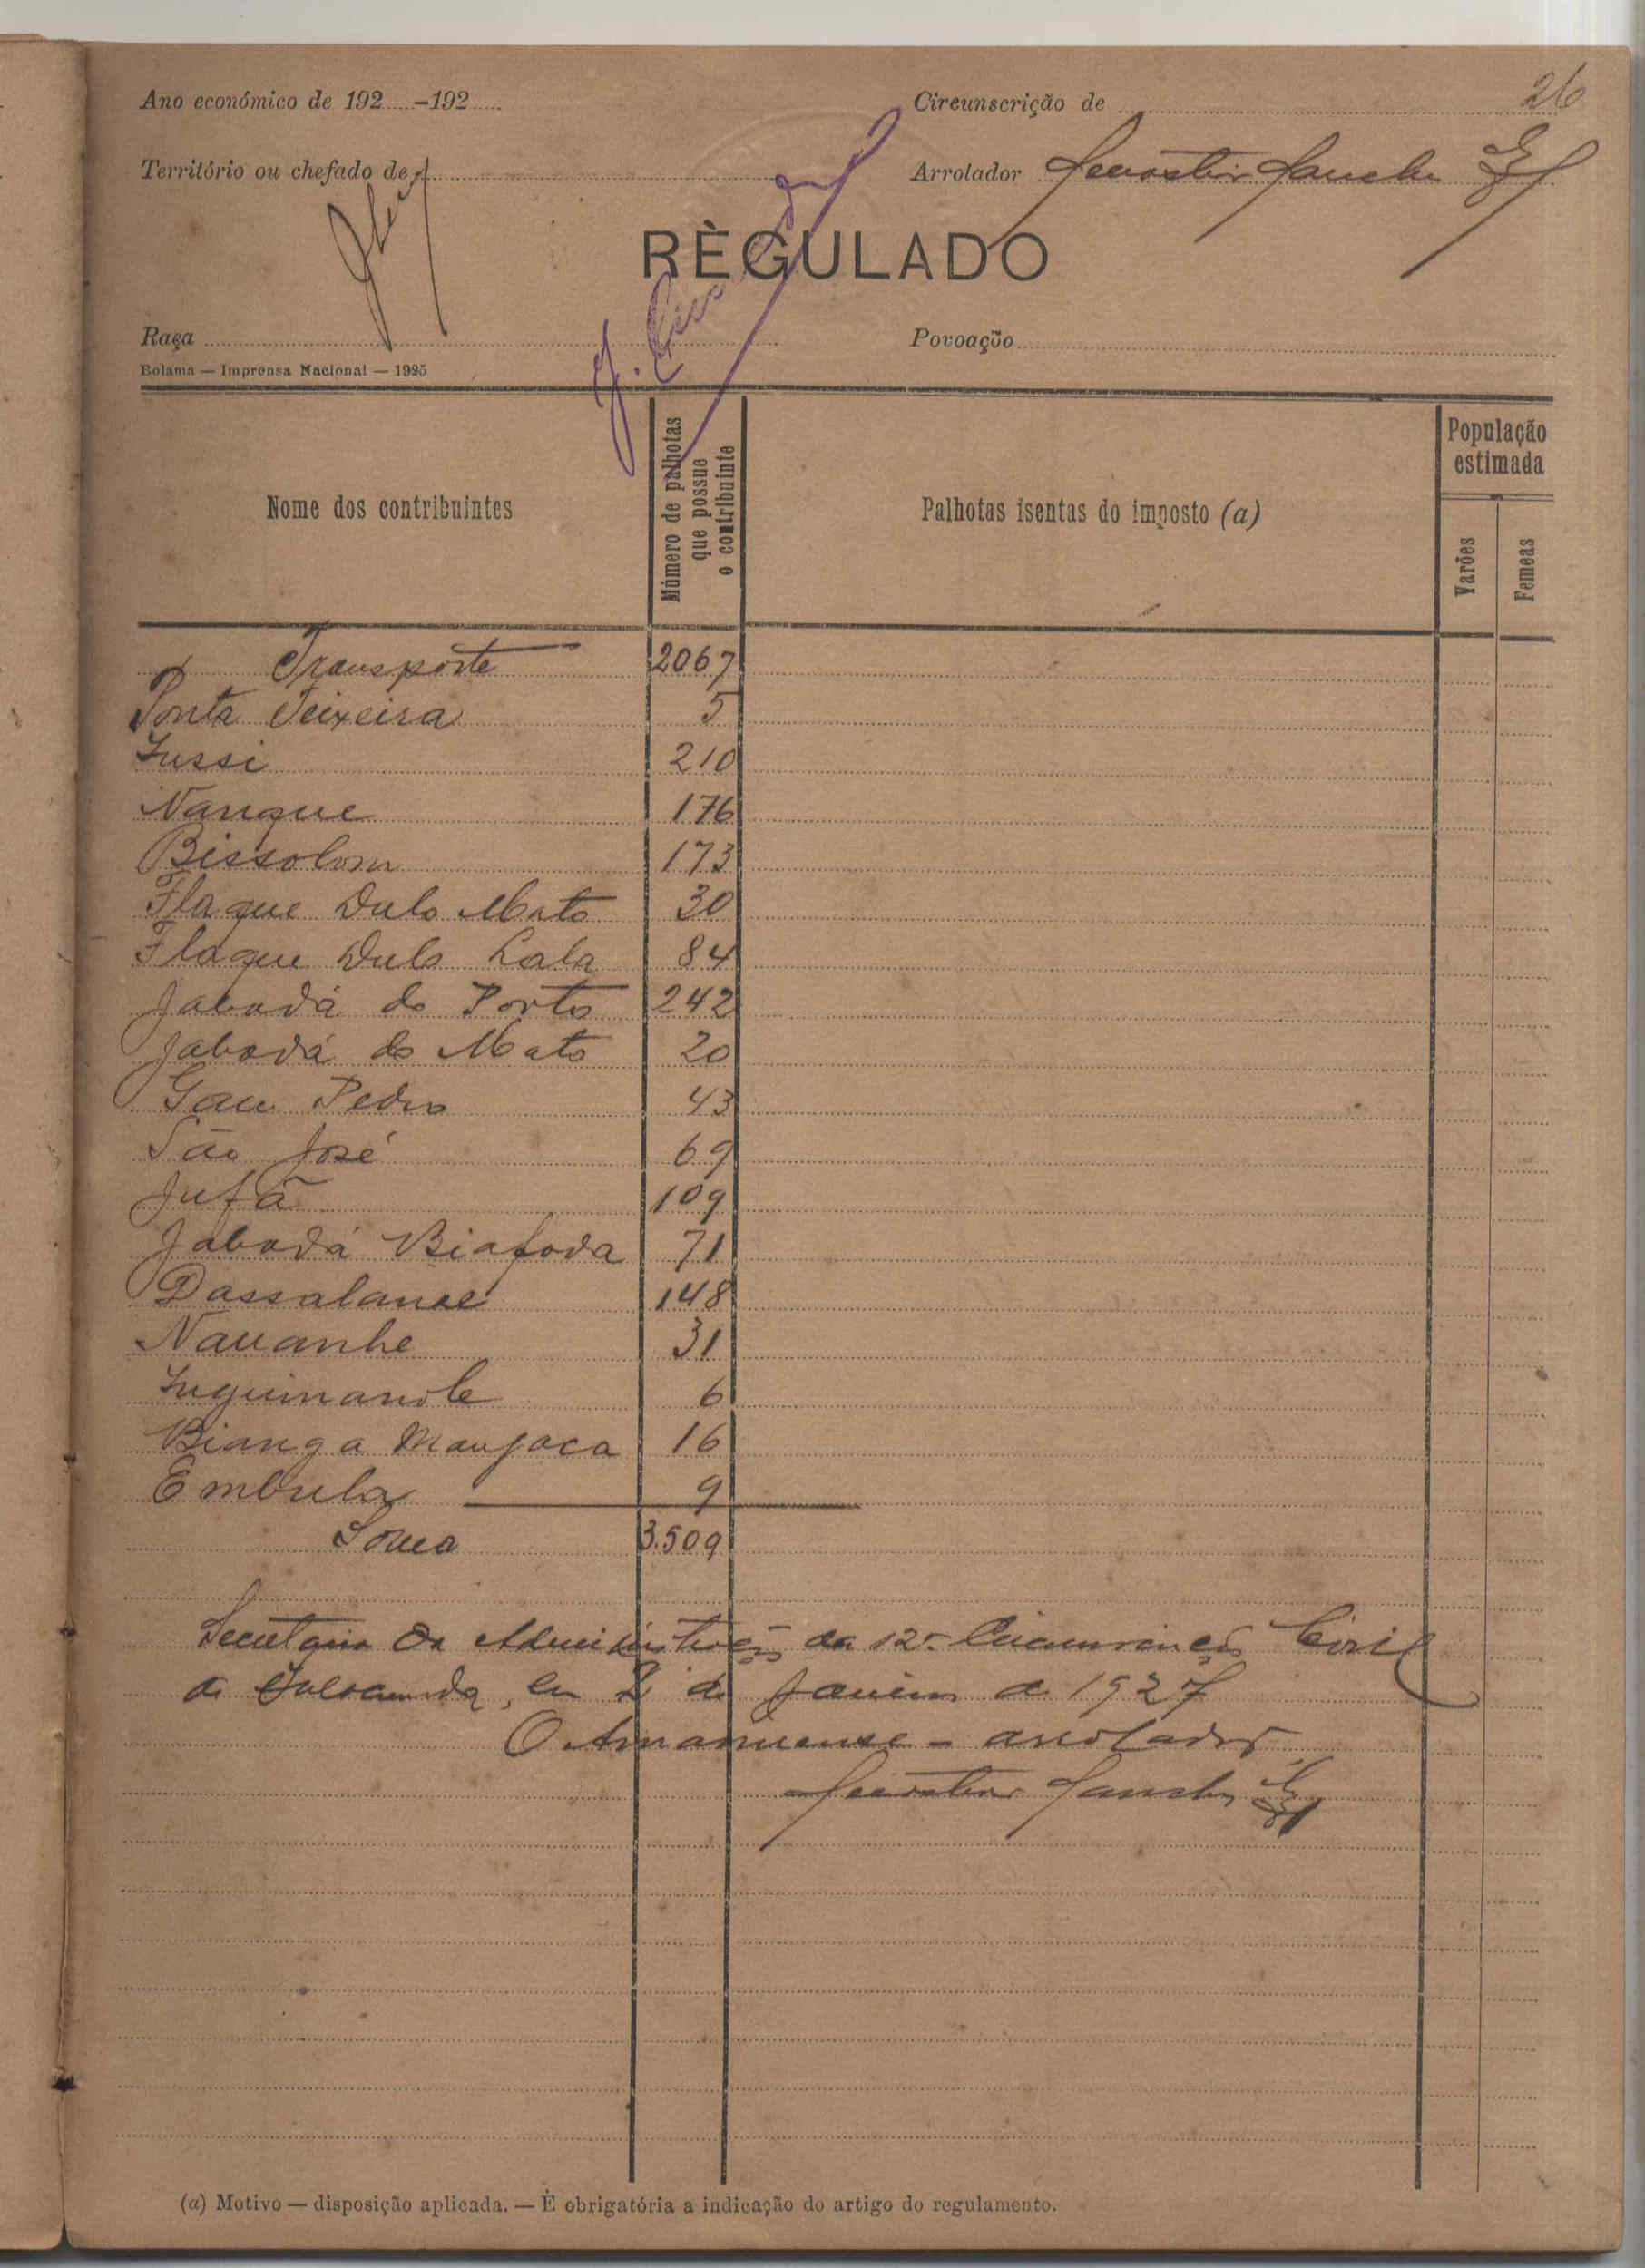 26
Ano económico de 192.....-192.....
Circunscrição de
Território ou chefado de
Arrolador
RÈGULADO
Raça
Povoação
Bolama — Imprensa Nacional — 1925
Nome dos contribuintes
Número de palhotas que possue o contribuinte
Palhotas isentas do imposto (a)
População estimada
Varões
Femeas
Transporte 2067
Ponta Teixeira 5
Jussi 210
Nanque 176
Bissolom 173
Flaque Dulo Mato 30
Flaque Dulo Lala 84
Jabadá do Porto 242
Jabadá do Mato 20
Gau Pedro 43
São José 69
Jufá 109
Jabadá Biafada 71
Dassalame 148
Nauanhe 31
6
Bianga Manjaca 16
Embula 9
Soma 3.509
Secretaria da Administração da 12ª Circunscrição Civil
de em 2 de Janeiro de 1927
O Amanuense - arrolador
Sanches
(a) Motivo — disposição aplicada. — È obrigatória a indicação do artigo do regulamento.